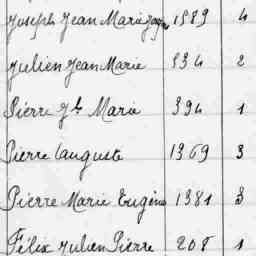 Joseph Jean Marie 1589 4
Julien Jean Marie 534 2
Pierre Jh Marie 394 1
Pierre auguste 1369 3
Pierre Marie Eugène 1381 3
Félix Julien Pierre 208 1